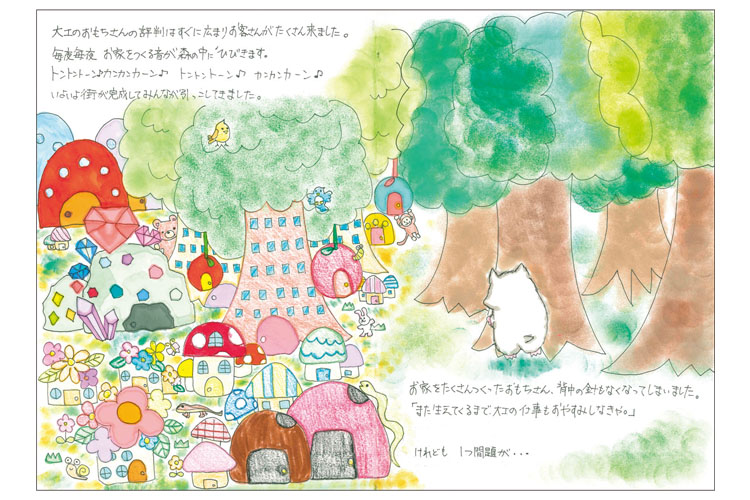 大工のおもちさんの評判はすぐに広まりお客さんがたくさん来ました。
毎夜毎夜 お家をつくる音が森の中にひびきます。
トントントーン♪カンカンカーン♪ トントントーン♪ カンカンカーン♪
いよいよ街が完成してみんなが引っこしてきました。
お家をたくさんつくったおもちさん、背中の針もなくなってしまいました。
「また生えてくるまで大工の仕事もおやすみしなきゃ。」
けれども 1つ問題が・・・